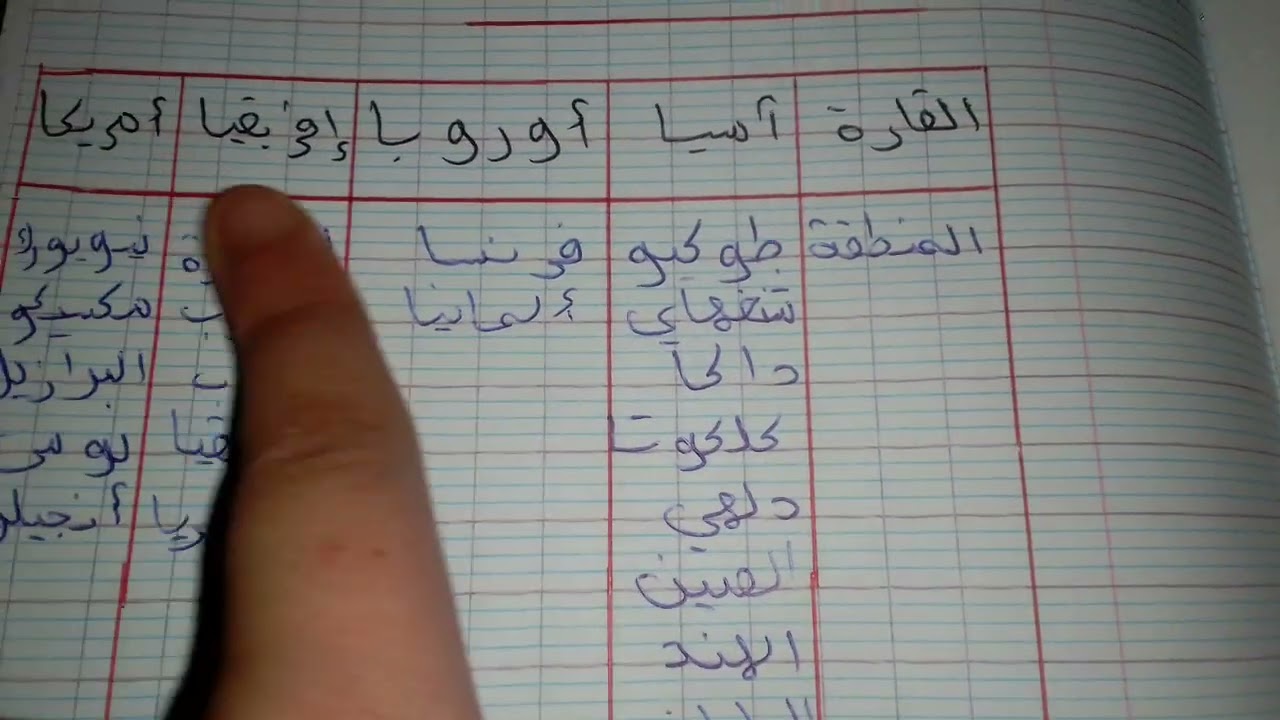 القارة آسيا أوروبا إفريقيا أمريكا
المنطقة طوكيو فرنسا نيويورك
شنغهاي ألمانيا مكسيكو
داكا البرازيل
كلكوتا لوس
دلهي أنجيلو
الصين
الهند